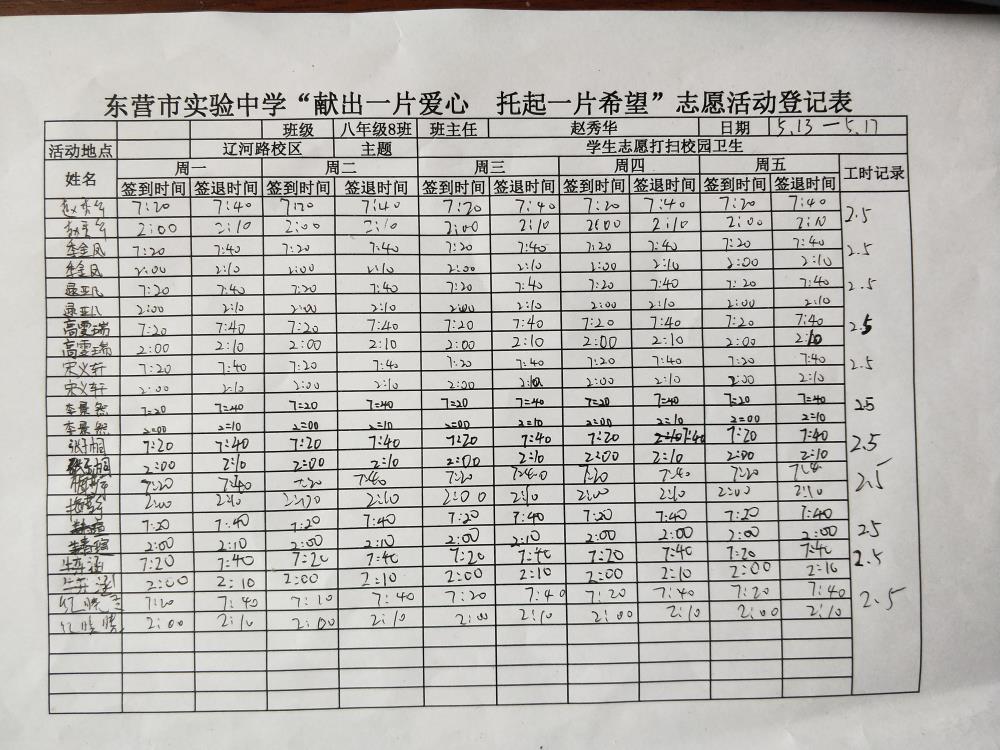 东营市实验中学“献出一片爱心 托起一片希望”志愿活动登记表
班级 八年级8班 班主任 赵秀华 日期 5.13-5.17
活动地点 辽河路校区 主题 学生志愿打扫校园卫生
姓名 周一 周二 周三 周四 周五 工时记录
签到时间 签退时间 签到时间 签退时间 签到时间 签退时间 签到时间 签退时间 签到时间 签退时间
7:20 7:40 7:20 7:40 7:20 7:40 7:20 7:40 7:20 7:40 2.5
2:00 2:10 2:00 2:10 2:00 2:10 2:00 2:10 2:00 2:10
李金凤 7:20 7:40 7:20 7:40 7:20 7:40 7:20 7:40 7:20 7:40 2.5
李金凤 2:00 2:10 2:00 2:10 2:00 2:10 2:00 2:10 2:00 2:10
7:20 7:40 7:20 7:40 7:20 7:40 7:20 7:40 7:20 7:40 2.5
2:00 2:10 2:00 2:10 2:00 2:10 2:00 2:10 2:00 2:10
高雯瑞 7:20 7:40 7:20 7:40 7:20 7:40 7:20 7:40 7:20 7:40 2.5
高雯瑞 2:00 2:10 2:00 2:10 2:00 2:10 2:00 2:10 2:00 2:10
宋义轩 7:20 7:40 7:20 7:40 7:20 7:40 7:20 7:40 7:20 7:40 2.5
宋义轩 2:00 2:10 2:00 2:10 2:00 2:10 2:00 2:10 2:00 2:10
李景然 7=20 7=40 7=20 7=40 7=20 7=40 7=20 7=40 7=20 7=40 25
李景然 2=00 2=10 2=00 2=10 2=00 2=10 2=00 2=10 2=00 2=10
7:20 7:40 7:20 7:40 7:20 7:40 7:20 7:40 7:20 7:40 2.5
2:00 2:10 2:00 2:10 2:00 2:10 2:00 2:10 2:00 2:10
7:20 7:40 7:20 7:40 7:20 7:40 7:20 7:40 7:20 7:4 2.5
2:00 2:10 2:00 2:10 2:00 2:10 2:00 2:10 2:00 2:10
7:20 7:40 7:20 7:40 7:20 7:40 7:20 7:40 7:20 7:40 25
2:00 2:10 2:00 2:10 2:00 2:10 2:00 2:00 2:00 2:00
牛弈涵 7:20 7:40 7:20 7:40 7:20 7:40 7:20 7:40 7:20 7:40 2.5
牛弈涵 2:00 2:10 2:00 2:10 2:00 2:10 2:00 2:10 2:00 2:10
7:20 7:40 7:10 7:40 7:20 7:40 7:20 7:40 7:20 7:40 2.5
2:00 2:10 2:00 2:10 2:00 2:10 2:00 2:10 2:00 2:10